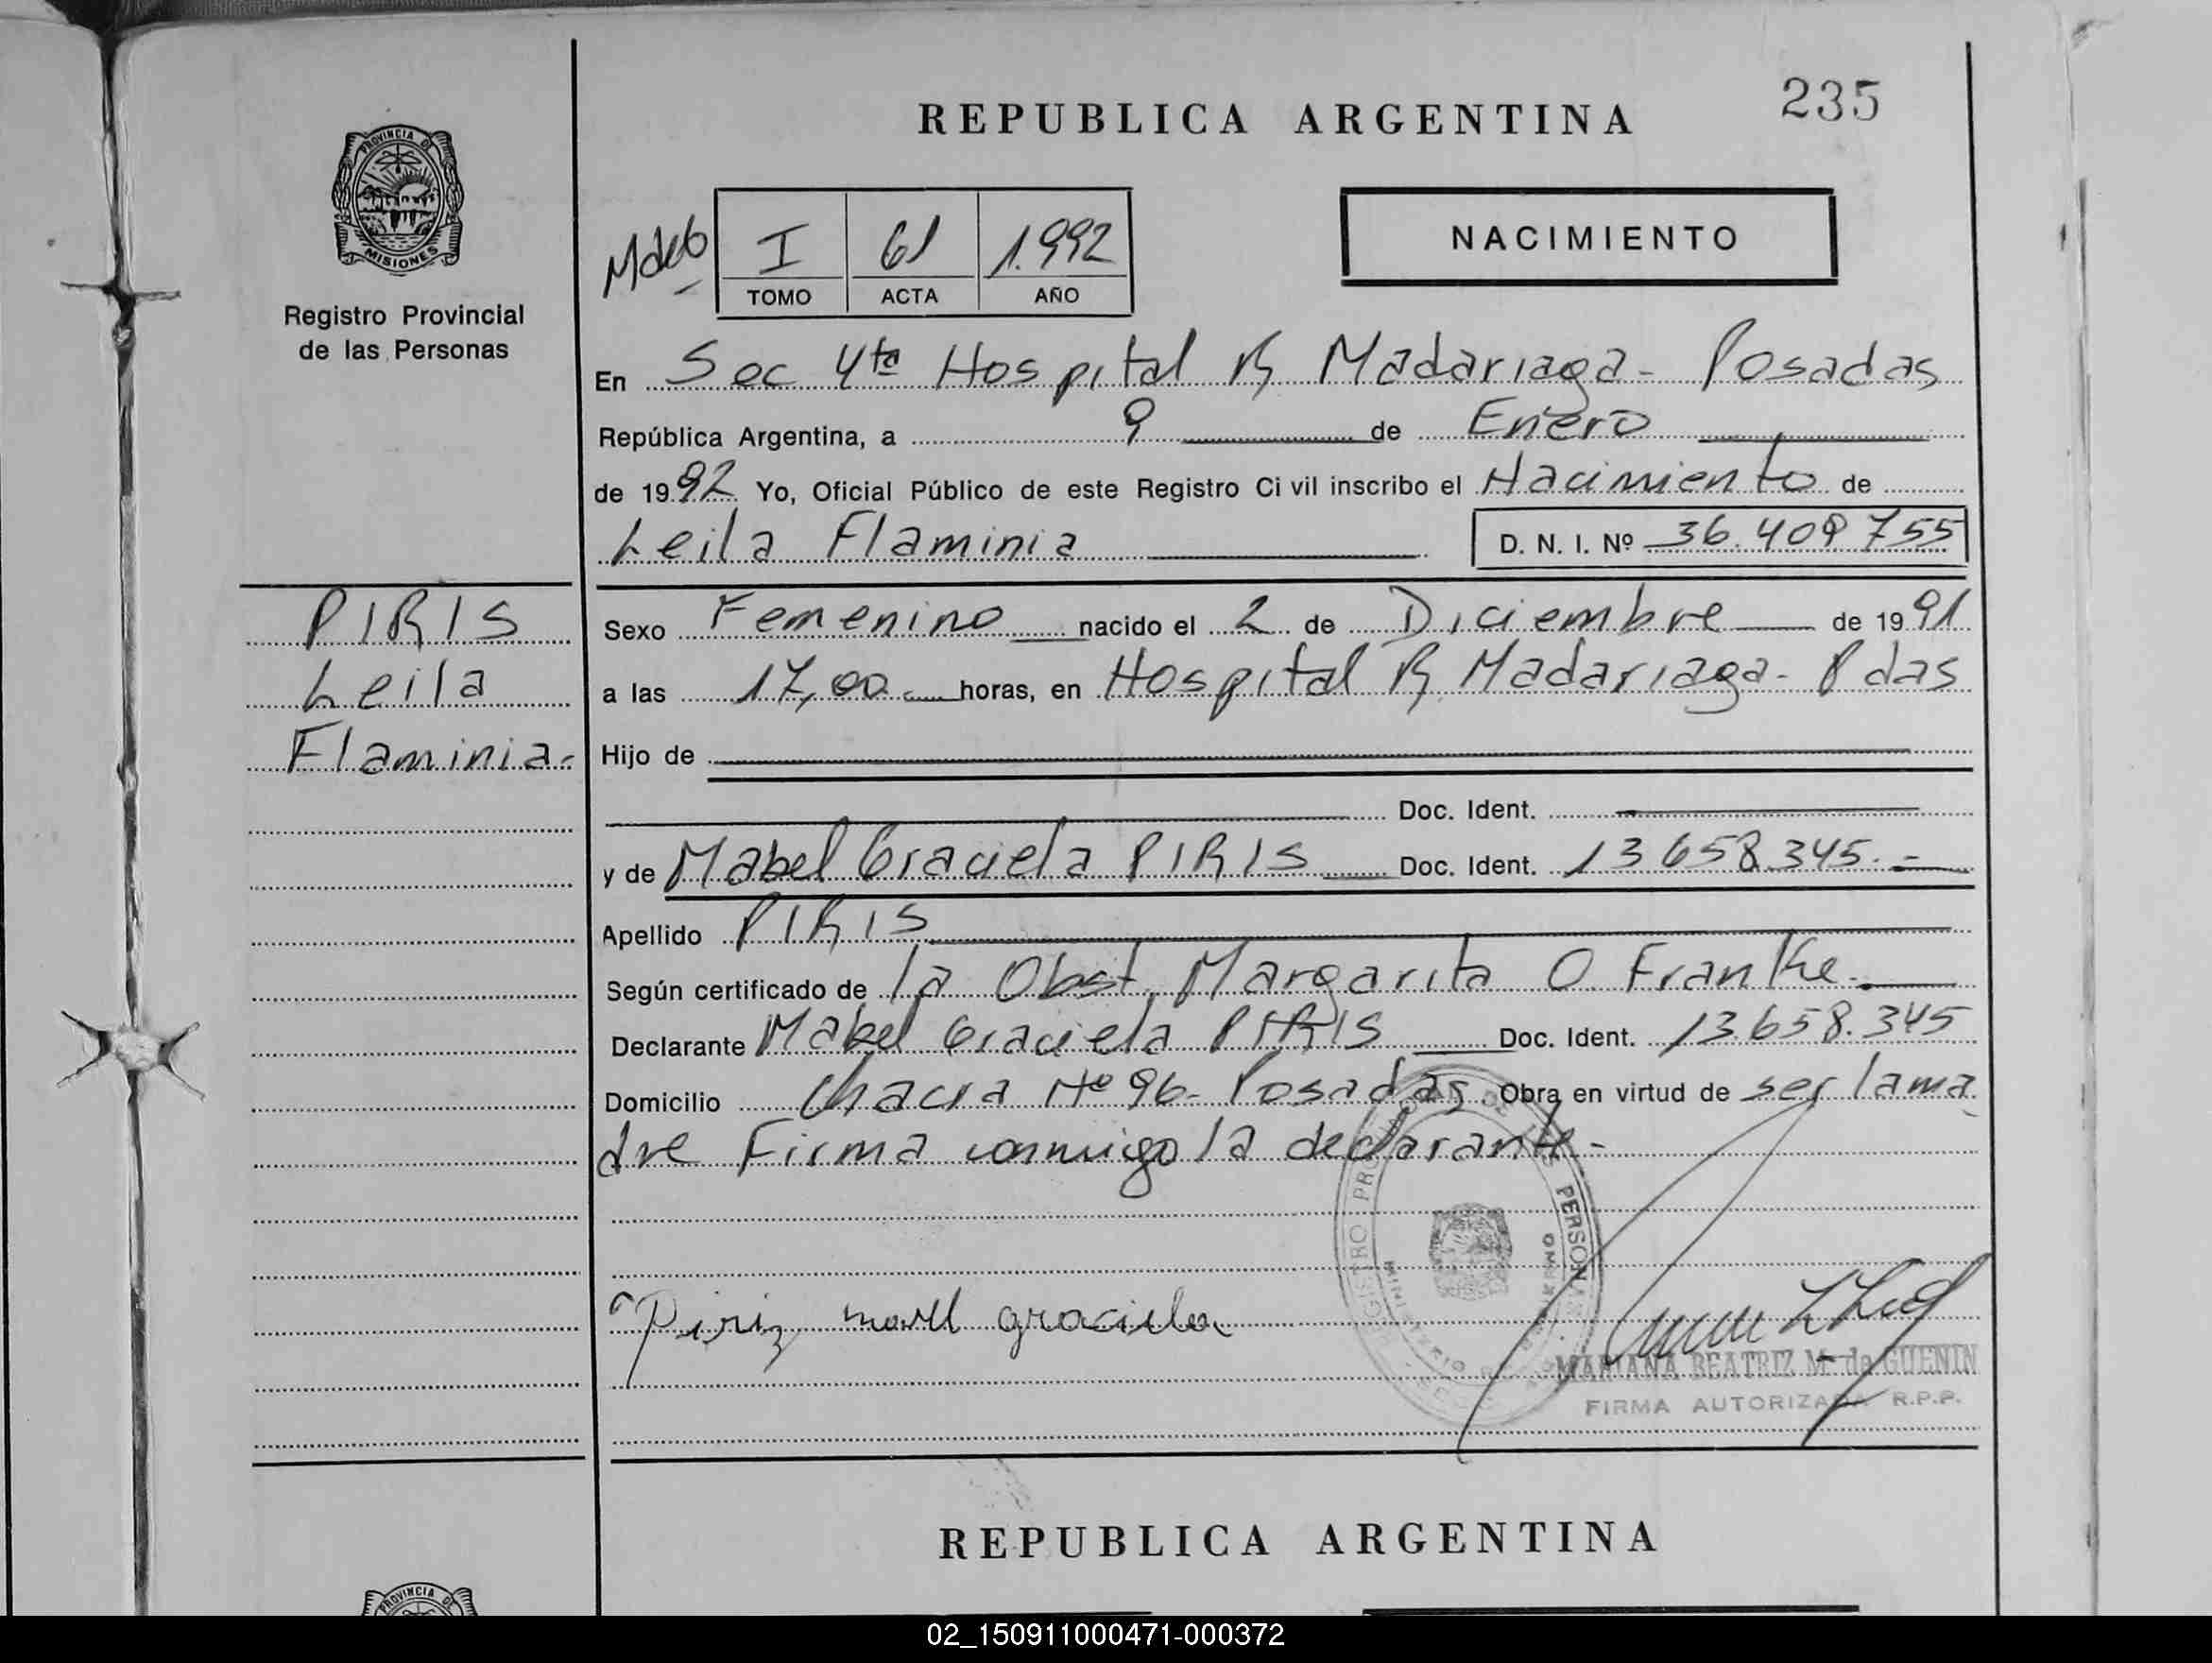 235
REPUBLICA ARGENTINA
PROVINCIA DE
MISIONES
Registro Provincial
de las Personas
I 61 1.992
TOMO ACTA AÑO
NACIMIENTO
En Sec 4ta Hospital R Madariaga - Posadas
República Argentina, a 9 de Enero
de 1992 Yo, Oficial Público de este Registro Civil inscribo el Nacimiento de
Leila Flaminia D. N. I. Nº 36.409755
PIRIS
Leila
Flaminia-
Sexo Femenino nacido el 2 de Diciembre de 1991
a las 17,00 horas, en Hospital R Madariaga - Pdas
Hijo de
Doc. Ident.
y de Mabel Graciela PIRIS Doc. Ident. 13658.345.-
Apellido PIRIS
Según certificado de la Obst. Margarita O. Franke.
Declarante Mabel Graciela PIRIS Doc. Ident. 13.658.345
Domicilio Chacra Nº 96- Posadas Obra en virtud de ser la ma
dre Firma conmigo la declarante-
Piriz graciela
MARIANA BEATRIZ M. de GUENIN
FIRMA AUTORIZADA R.P.P.
REPUBLICA ARGENTINA
PROVINCIA DE
02_150911000471-000372